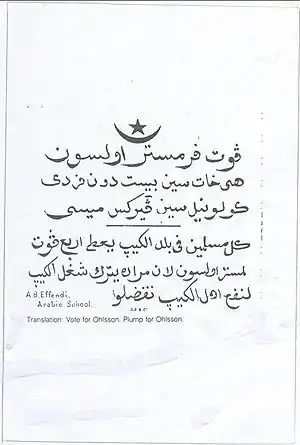 ڤوت فر مستر اولسون
هی خات سین بیست دون فر دی
کل مسلمین فی بلد الکیپ یعطی اربع ڤوت
لمستر اولسون لان مراده یترك شغل الکیپ
لنفع اهل الکیپ تفضلوا
A.B.Effendi.
Arabic School.
Translation: Vote for Ohlsson. Plump for Ohlsson.